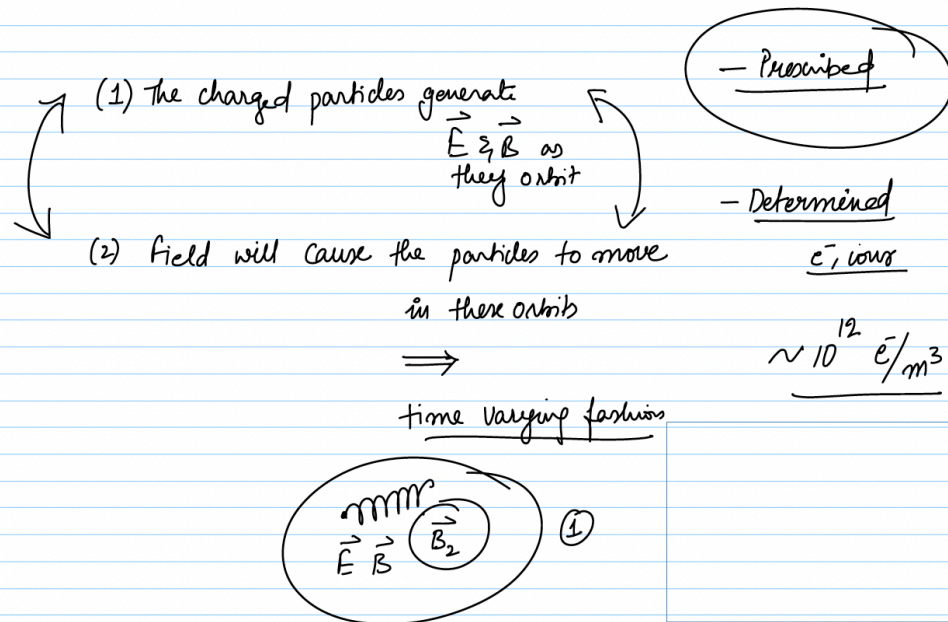 (1) The charged particles generate
E⃗ & B⃗ as
they orbit
(2) Field will cause the particles to move
in these orbits
⇒
time varying fashion
E⃗ B⃗ B⃗₂
①
— Prescribed
— Determined
e⁻, ions
~ 10¹² e⁻/m³